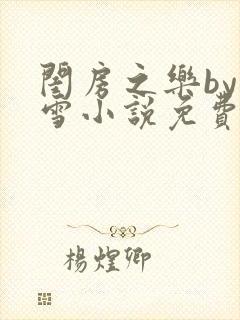 閨房之樂by
雪小說免費
楊煌卿